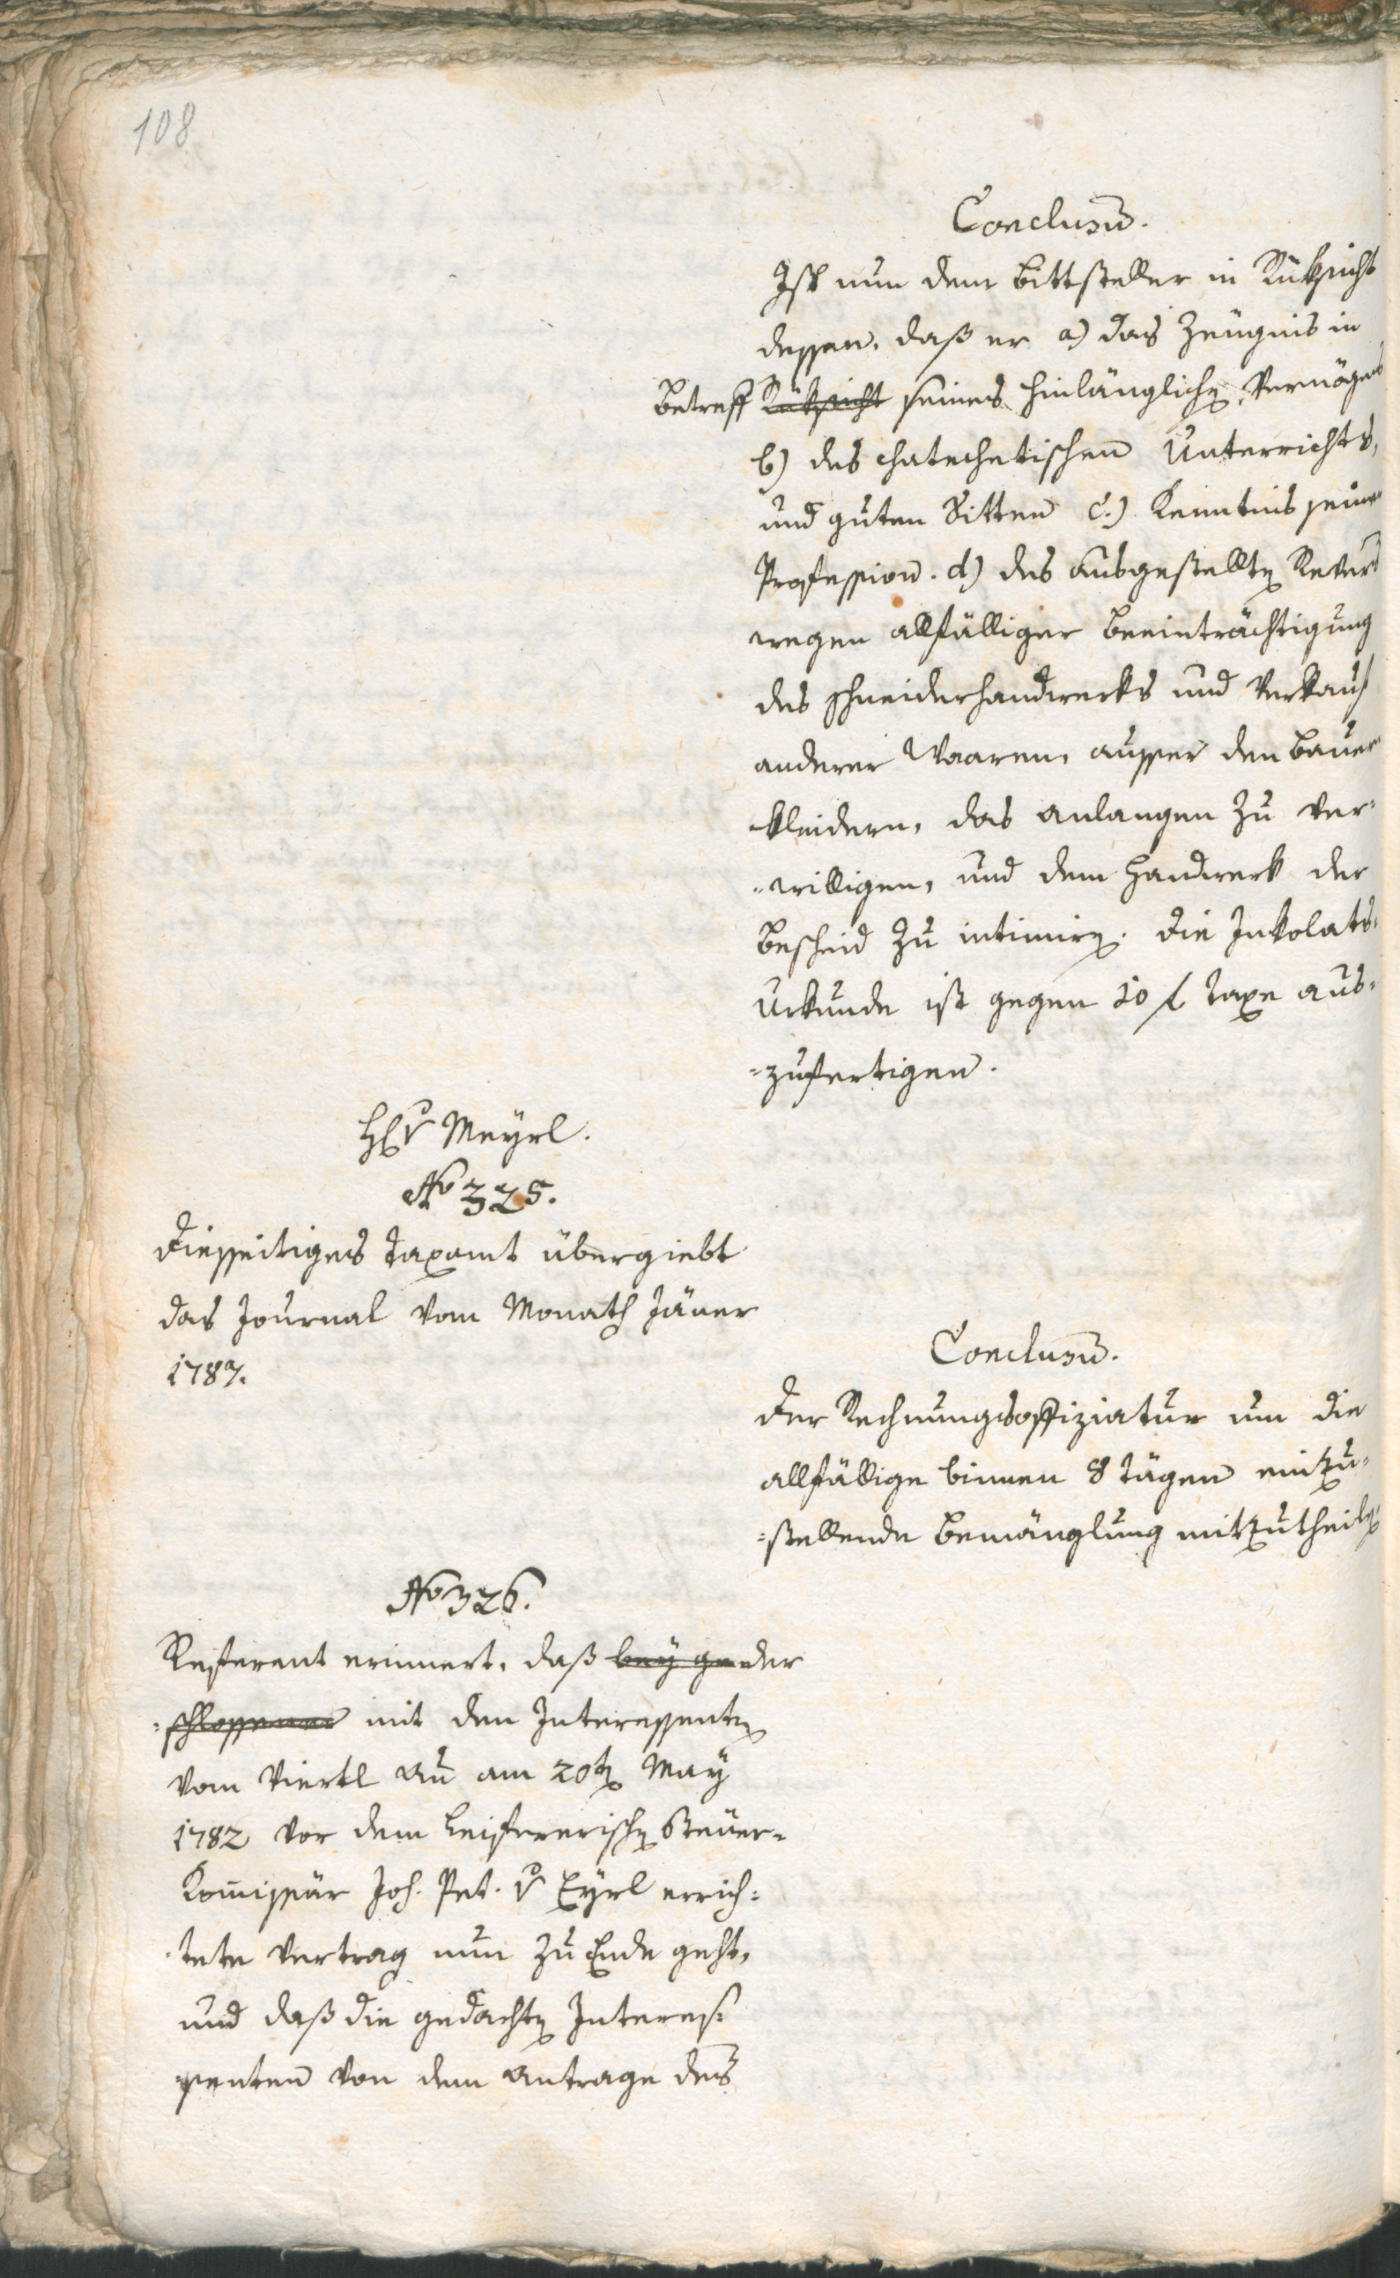 108
Conclusum̄.
Ist nun dem Bittsteller in Rüksicht
dessen, daß er a) das Zeugnis in
Betreff Rüksicht seines hinlänglichen Vermögens
b) des chatechetischen Unterrichts,
und guten Sitten c.) Kenntnis seiner
Profession. d) des ausgestellten Revers
wegen allfälliger Beeinträchtigung
des Schneiderhandwerks und Verkauf
anderer Waaren, ausser den Bauer
kleidern, das Anlangen zu ver=
=willigen, und dem Handwerk der
Bescheid zu intimiren. Die Inkolats=
Urkunde ist gegen 10 f Taxe aus=
=zufertigen.
H v Meyrl.
No 325.
Diesseitiges Taxamt übergiebt
das Journal vom Monath Jäner
1787.
Conclusum̄.
Der Rechnungsoffiziatur um die
allfällige binnen 8 Tägen einzu=
=stellende Bemänglung mitzutheilen
No 326.
Referent erinnert, daß bey ge der
=schlossener mit den Interessenten
vom Viertl Au am 20ten May
1782 vor dem Leiferischen Steuer=
Kom̄issär Joh. Pet. v Eyrl errich=
=tete Vertrag nun zu Ende geht,
und daß die gedachten Interes=
senten von dem Antrage des